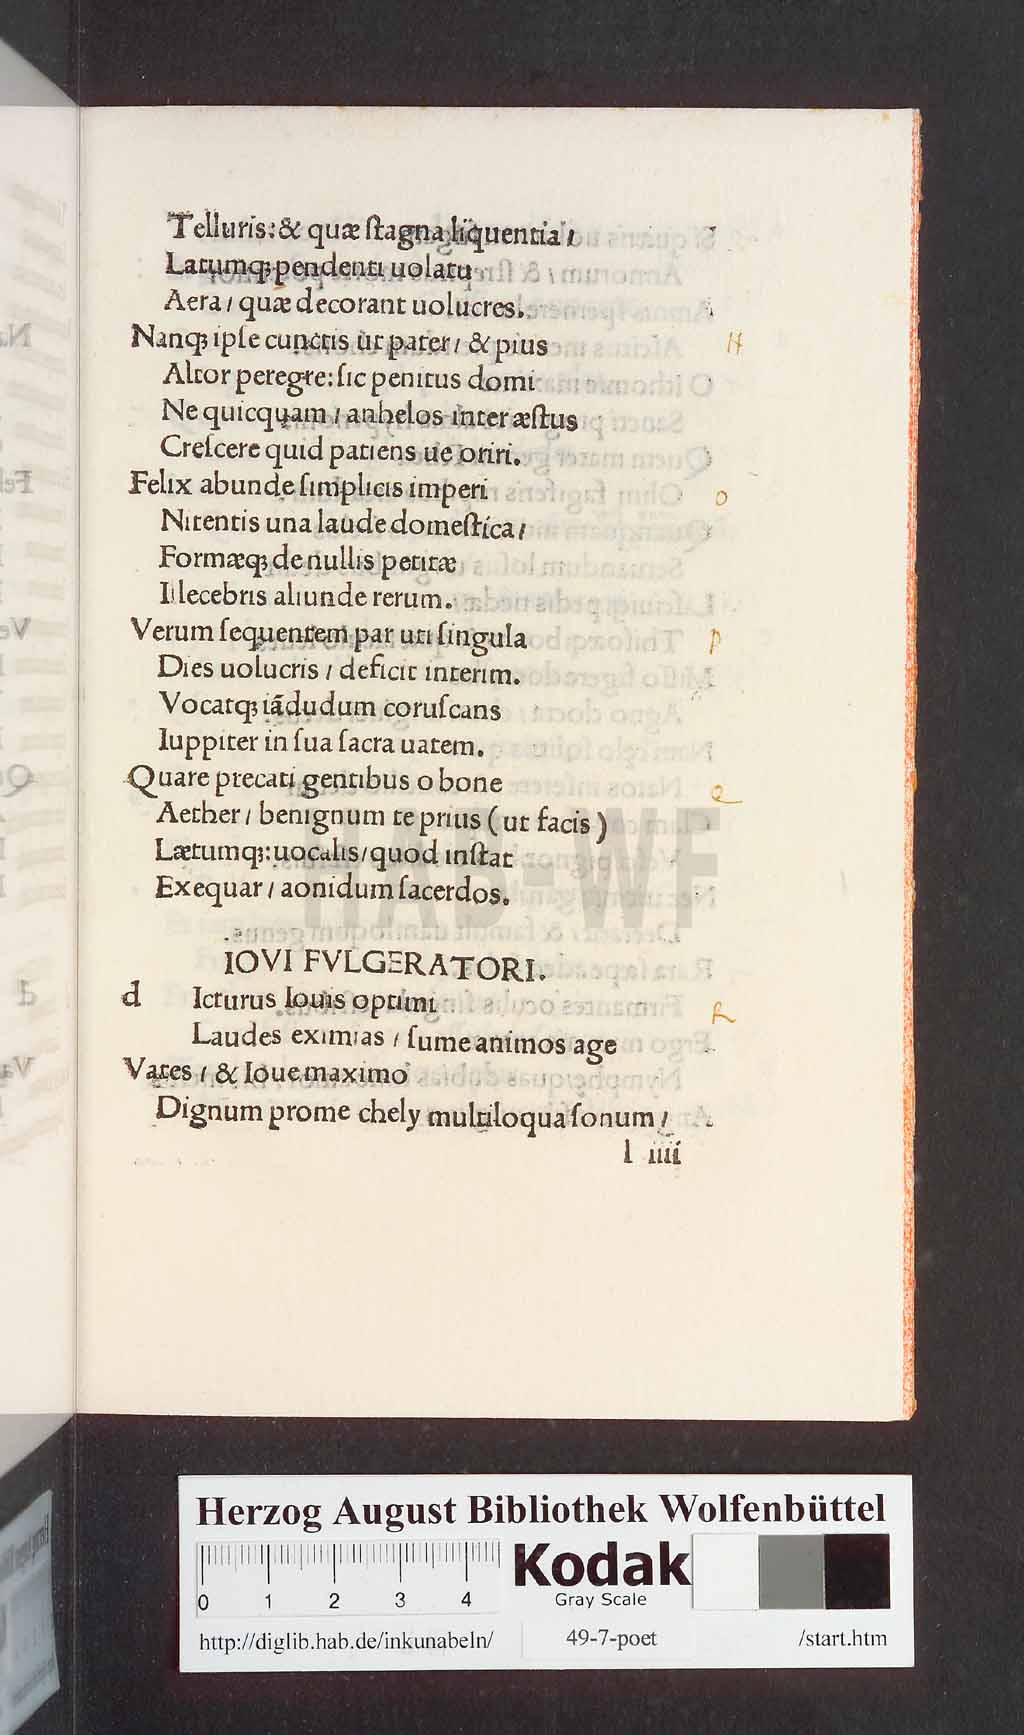 Telluris: & quæ ſtagna liquentia /
Latumqꝫ pendenti uolatu
Aera / quæ decorant uolucres.
Nanqꝫ ipſe cunctis ut pater / & pius
Altor peregre: ſic penitus domi
Ne quicquam / anhelos inter æſtus
Creſcere quid patiens ue oriri.
Felix abunde ſimplicis imperi
Nitentis una laude domeſtica /
Formæqꝫ de nullis petitæ
Illecebris aliunde rerum.
Verum ſequentem par uti ſingula
Dies uolucris / deficit interim.
Vocatqꝫ iādudum coruſcans
Iuppiter in ſua ſacra uatem.
Quare precati gentibus o bone
Aether / benignum te prius ( ut facis )
Lætumqꝫ: uocalis / quod inſtat
Exequar / aonidum ſacerdos.
IOVI FVLGERATORI.
d Icturus Iouis optimi
Laudes eximias / ſume animos age
Vates / & Ioue maximo
Dignum prome chely multiloqua ſonum /
l iiii
H
o
p
Q
R
HAB-WF
Herzog August Bibliothek Wolfenbüttel
0 1 2 3 4
Kodak
Gray Scale
http://diglib.hab.de/inkunabeln/ 49-7-poet /start.htm